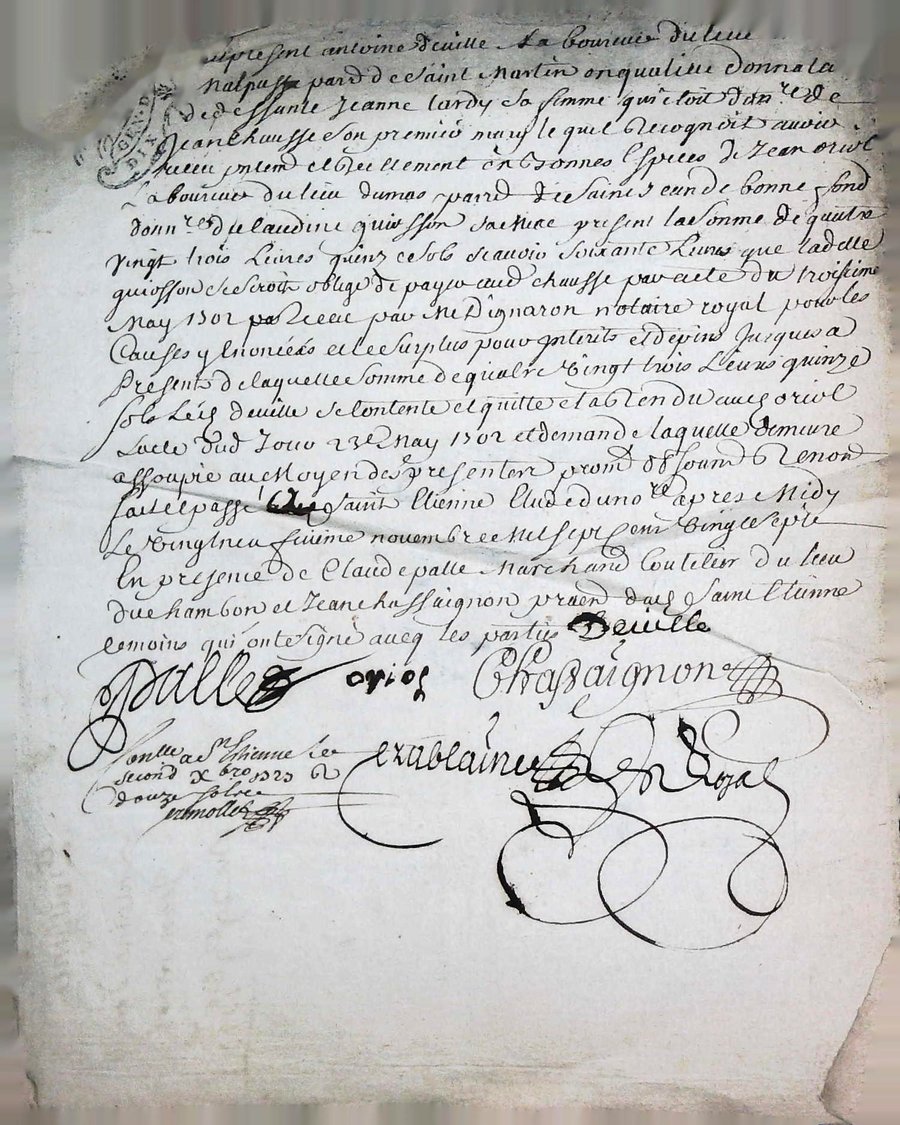 present antoine deuille Laboureur du lieu
malpasse parr de Saint Martin en qualitte donna la
de deffunte Jeanne tardy sa femme qui etoit don.re de
Jean Chausse son premier mary lequel Recognoit auoir
receu et Reellement en bonnes Especes de Jean oriol
Laboureur du lieu dumas parr de Saint Jean de bonne fond
donn.re de Claudine quiosson sa present la Somme de quatre
vingt trois Liures quinze sols scauoir soixante Liures que ladette
quiosson de payer aud chausse par acte du troisieme
May 1702 par Me Pignaron notaire royal pour les
Causes y Enoncées et le Surplus pour Interets et depens Jusques a
Present de laquelle Somme de quatre Vingt trois Liures quinze
sols Led deuille se Contente et quitte et led oriol
acte dud Jour 23e May 1702 et demande laquelle demeure
assoupie au Moyen des presentes prom obl soum Renon
fait et passé a Saint Etienne Etude du no.re apres Midy
Le Vingt neufuieme nouembre Mil sept Cent Vingt sept
En presence de Claude palle Marchand Coutelier du lieu
du chambon et Jean chassaignon dud Saint Etienne
temoins qui ont signé aueq les parties Deuille
Palle oriol Chassaignon
Conlle a St Etienne le
second Xbre 1727 R
douze sols
Royal